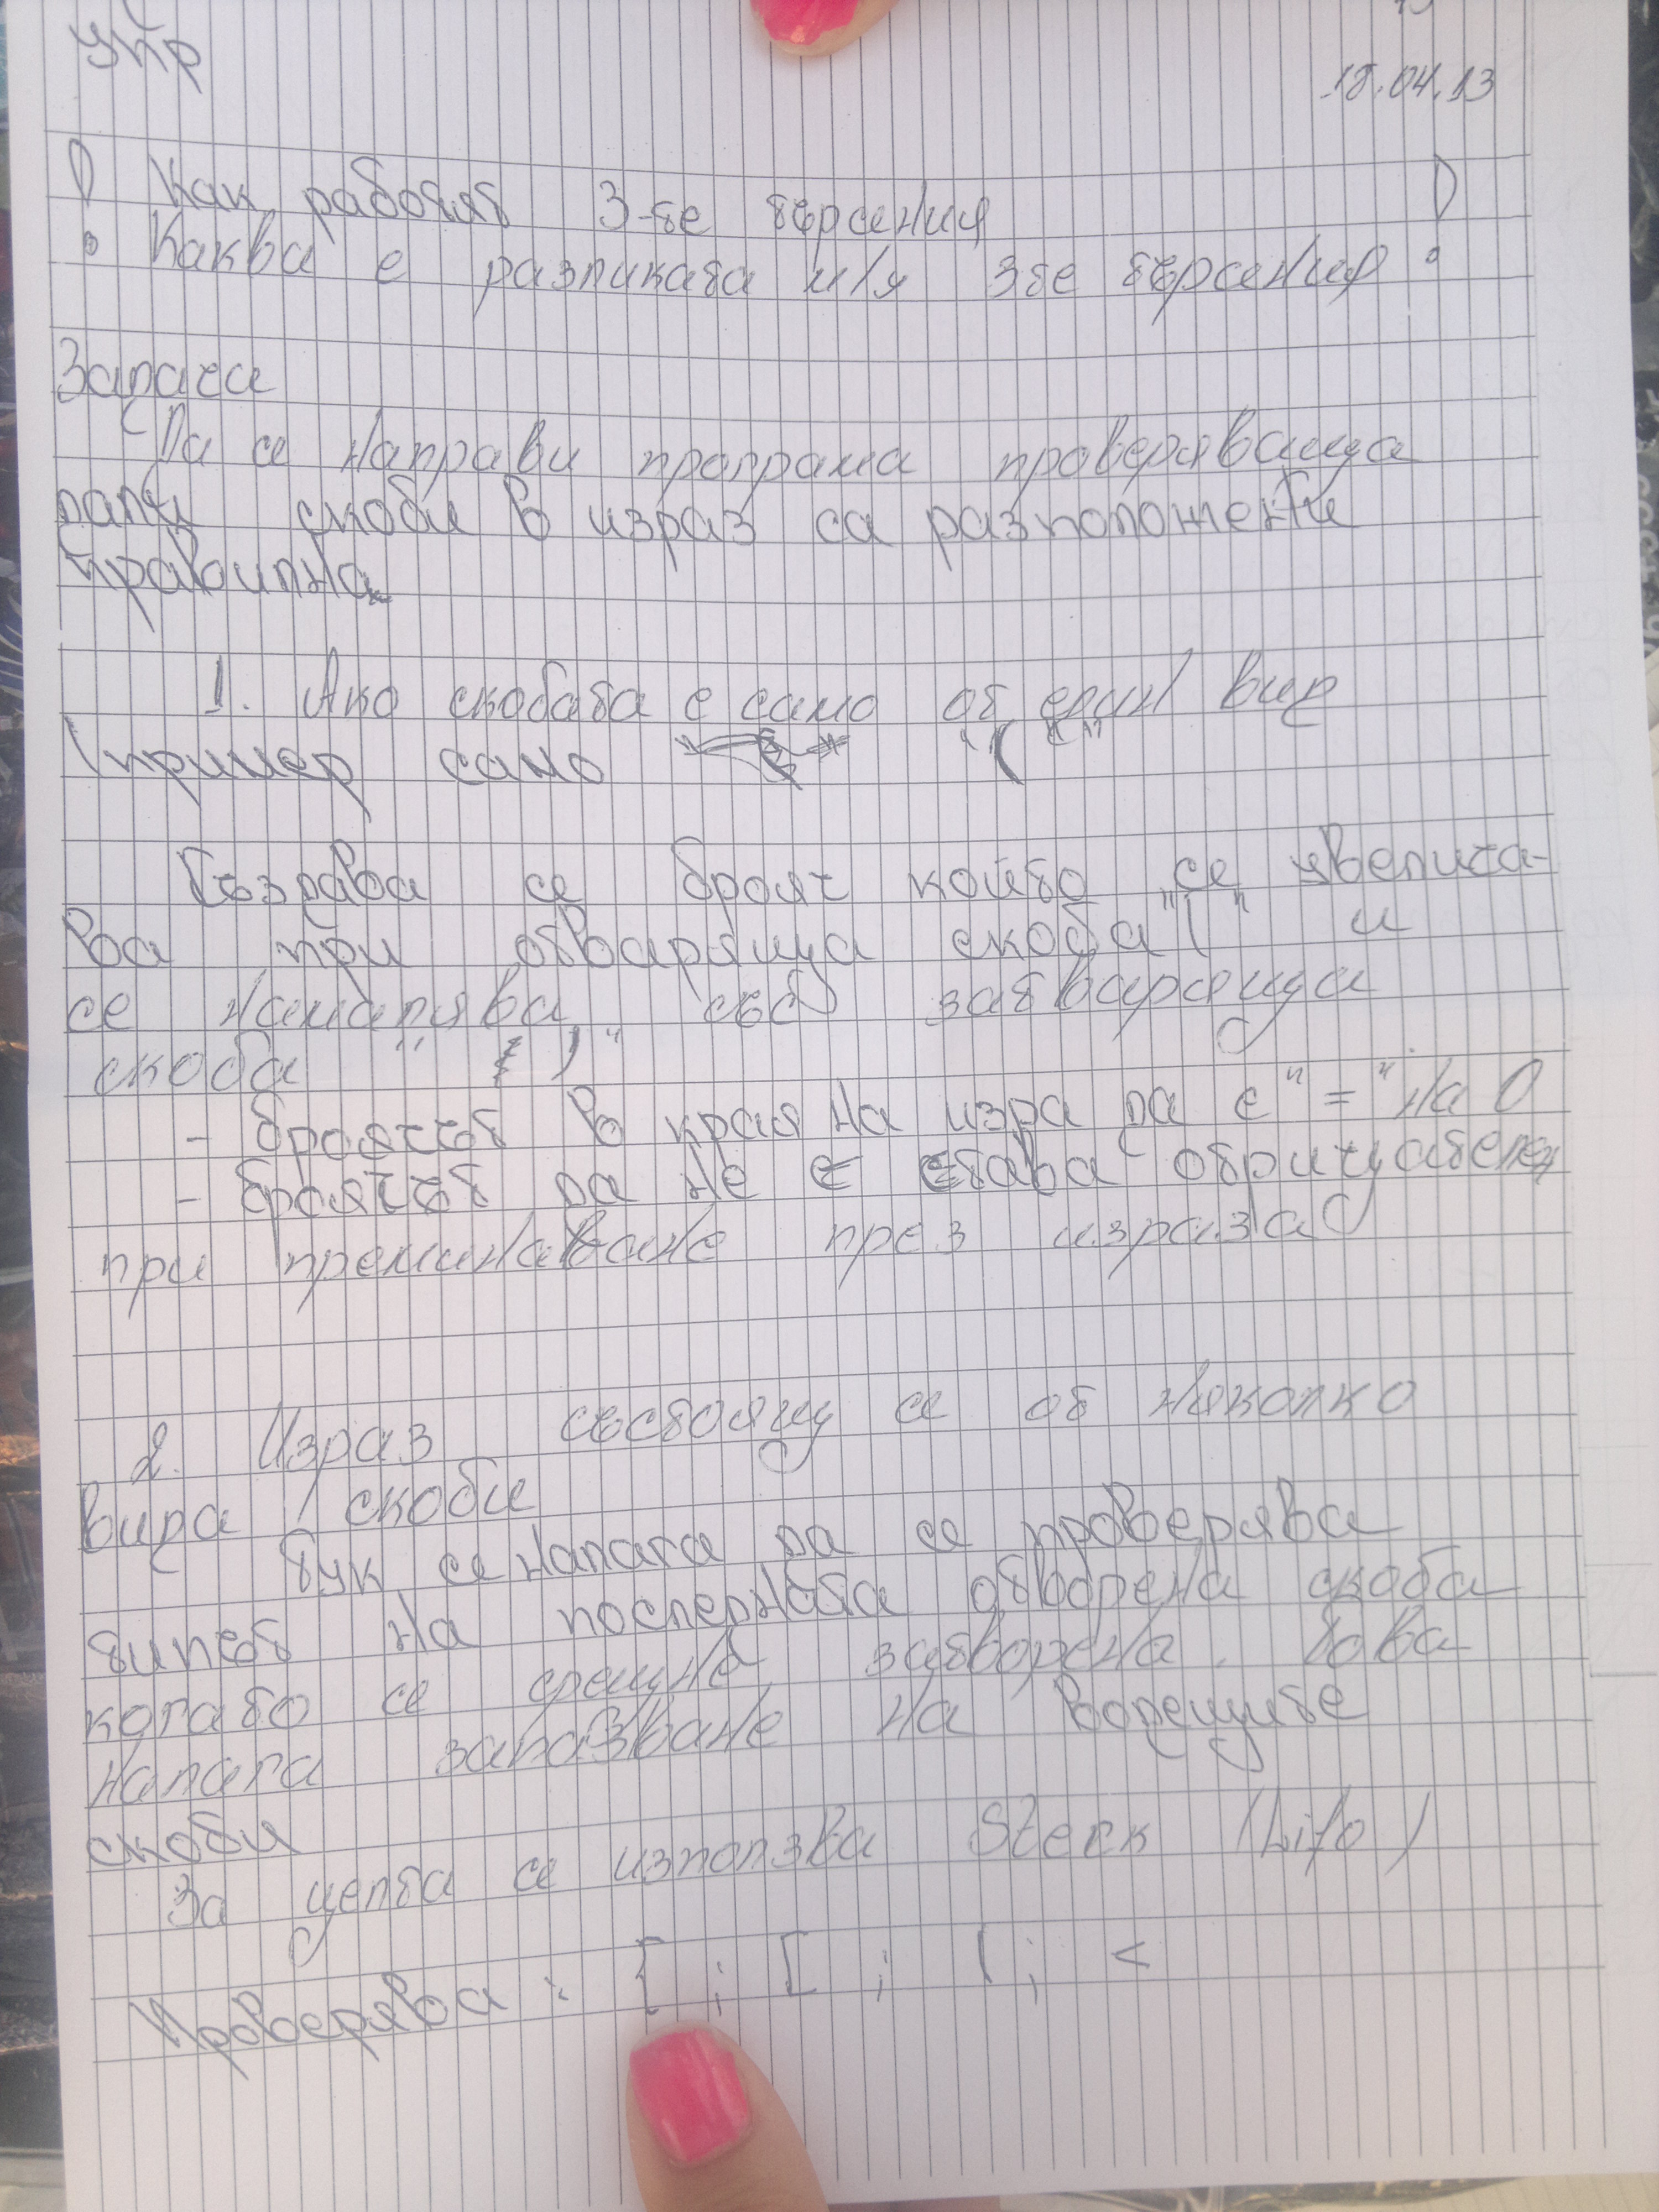 Упр
18.04.13
! Как работят 3-те търсения !
Каква е разликата м/я 3те търсения
Задача
Да се направи програма проверяваща
дали скоби в израз са разположени
правилно
1. Ако скобата е само от един вид
(пример само "("
Създава се брояч който се увелича-
ва при отваряща скоба "(" и
се намалява със затваряща
скоба ")"
- броячът в края на изра да е "=" на 0
- броячът да не става отрицателен
при преминаване през израза
2. Израз състоящ се от няколко
вида скоби
Тук се налага да се проверява
типът на последната отворена скоба
когато се срещне затворена. Това
налага запазване на
скоби
За целта се използва Steck (Lifo)
Проверява: { ; [ ; ( ; <